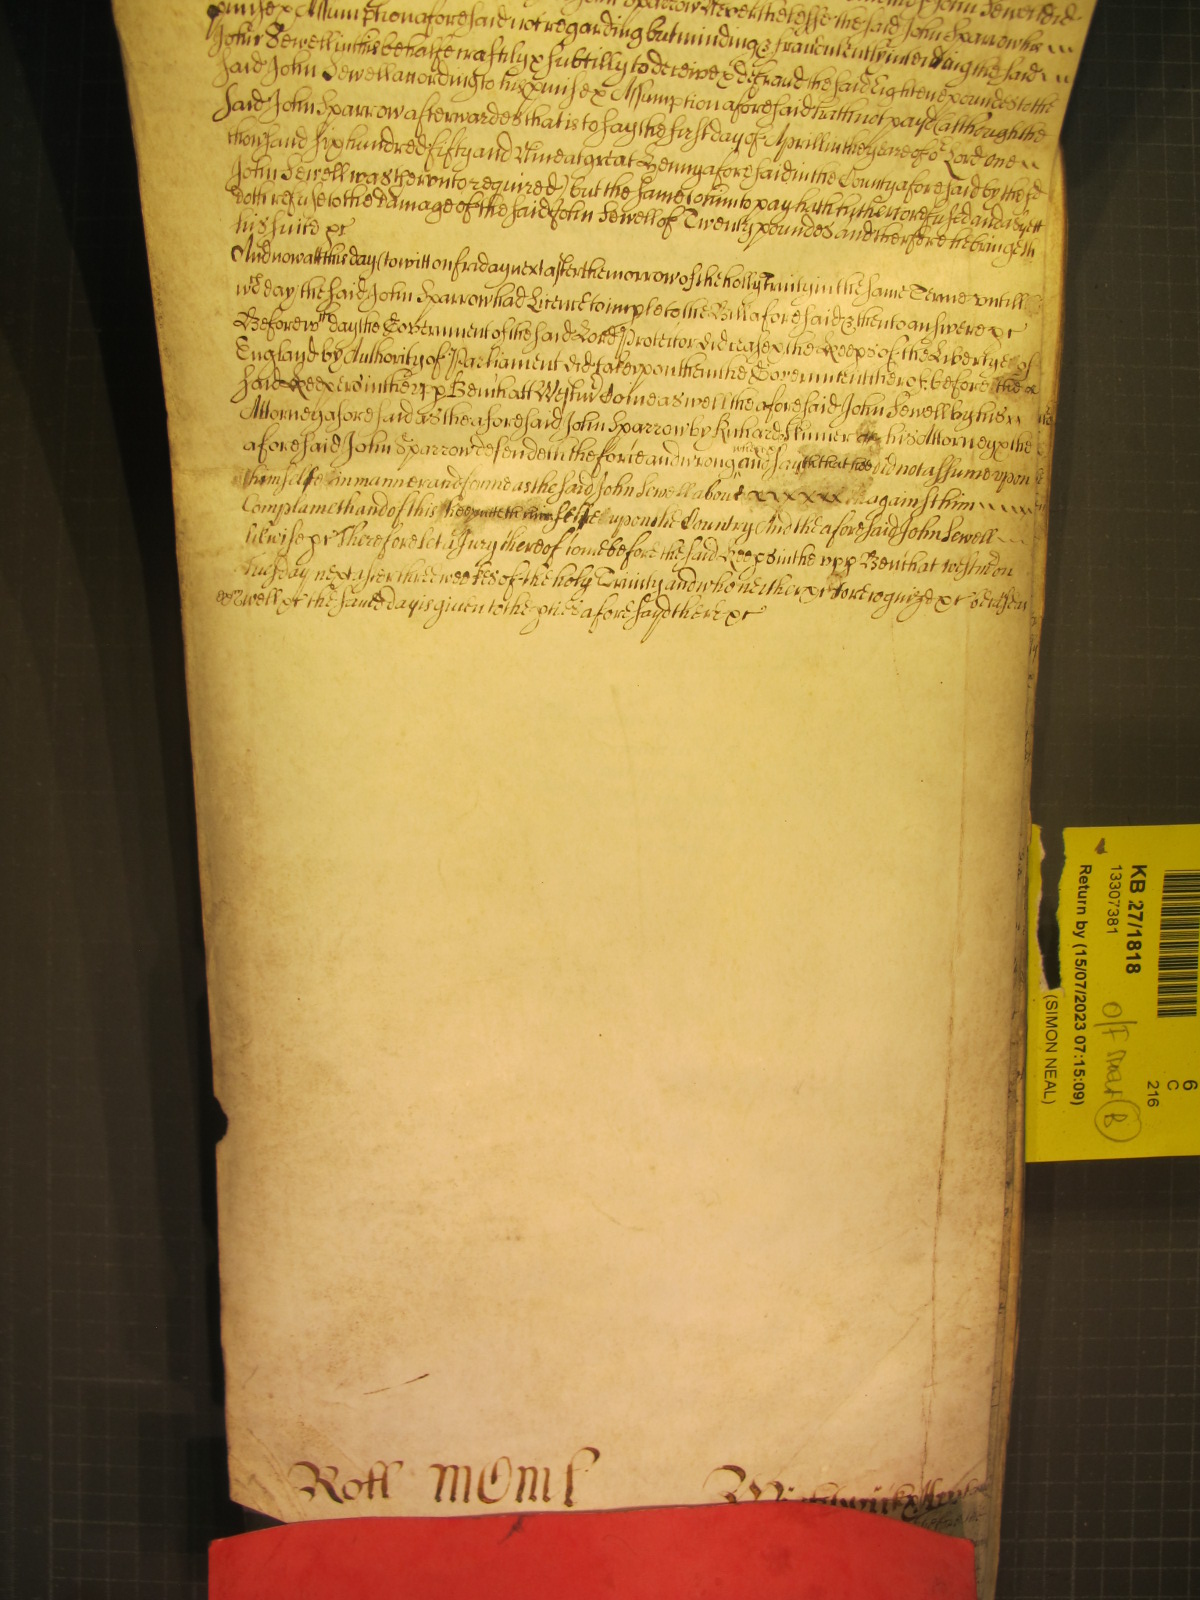 John Sparrow Neverthelesse the said John Sparrow his
p'mise & Assumption aforesaid not regarding but minding & fraudulently intending the said
John Sewell in this behalfe craftily & subtilly to deceive & defraud the said Eightene poundes to the
said John Sewell according to his p'mise & Assumption aforesaid hath not payd (although the
said John Sparrow afterwardes that is to say the first day of Aprill in the yeare of or Lord one
thousand six hundred fifty and Nine at great aforesaid in the County aforesaid by the sd
John Sewell was therunto required) but the same to him to pay hath hitherto refused and as yett
doth refuse to the damage of the said John Sewell of Twenty poundes and therfore he bringeth
his suite &c
And now att this day (to witt on friday next after the morrow of the holly Trinity in the same Terme untill
wch day the said John Sparrow had Licence to imple to the Bill aforesaid & then to answere &c
Before wch day the Goverment of the said Lord Protector did cease & the Keeps of the Libertye of
England by Authority of Parliament did take upon them the Goverment therof before the
said Keepers in the upp Bench att Westmr Come aswell the aforesaid John Sewell by his
Attorney aforesaid as the aforesaid John Sparrow by Richard his Attorney & the
aforesaid John Sparrow defendeth the force and wrong when &c and sayth that hee did not assume upon
himselfe in manner and forme as the said John Sewell above against him
Complaineth and of this hee putteth him selfe upon the Country And the aforesaid John Sewell
likewise &c Therefore let a Jury thereof come before the said Keeps in the upp Bench at westm on
Tuesday next after three weekes of the holy Trinity and who neither &c to recognize &c because
aswell &c the same day is given to the pties aforesayd there &c
Roll
KB 27/1818
13307381
Return by (15/07/2023 07:15:09)
(SIMON NEAL)
6
C
216